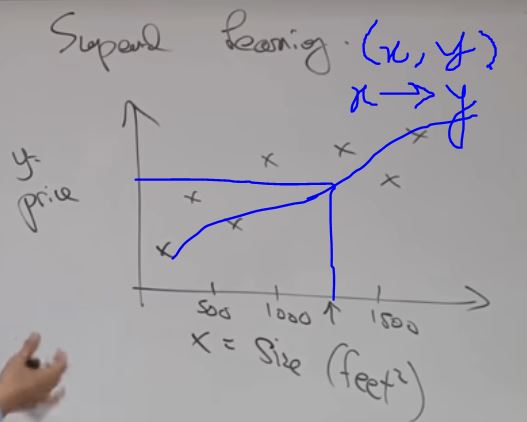 Supervd Learning. (x, y)
x → y
y-
price
500 1000 ↑ 1500
x = Size (feet²)